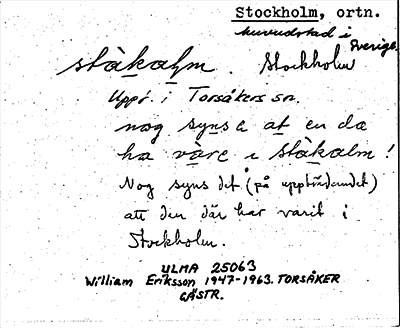 Stockholm, ortn.
huvudstad i Sverige.
stàkaḷm. Stockholm
Uppt i Torsåkers sn.
nog syns e at en da
ha vàre i stàkalm!
Nog syns det (på uppträdandet)
att den där har varit i
Stockholm.
ULMA 25063
William Eriksson 1947-1963. TORSÅKER
GÄSTR.